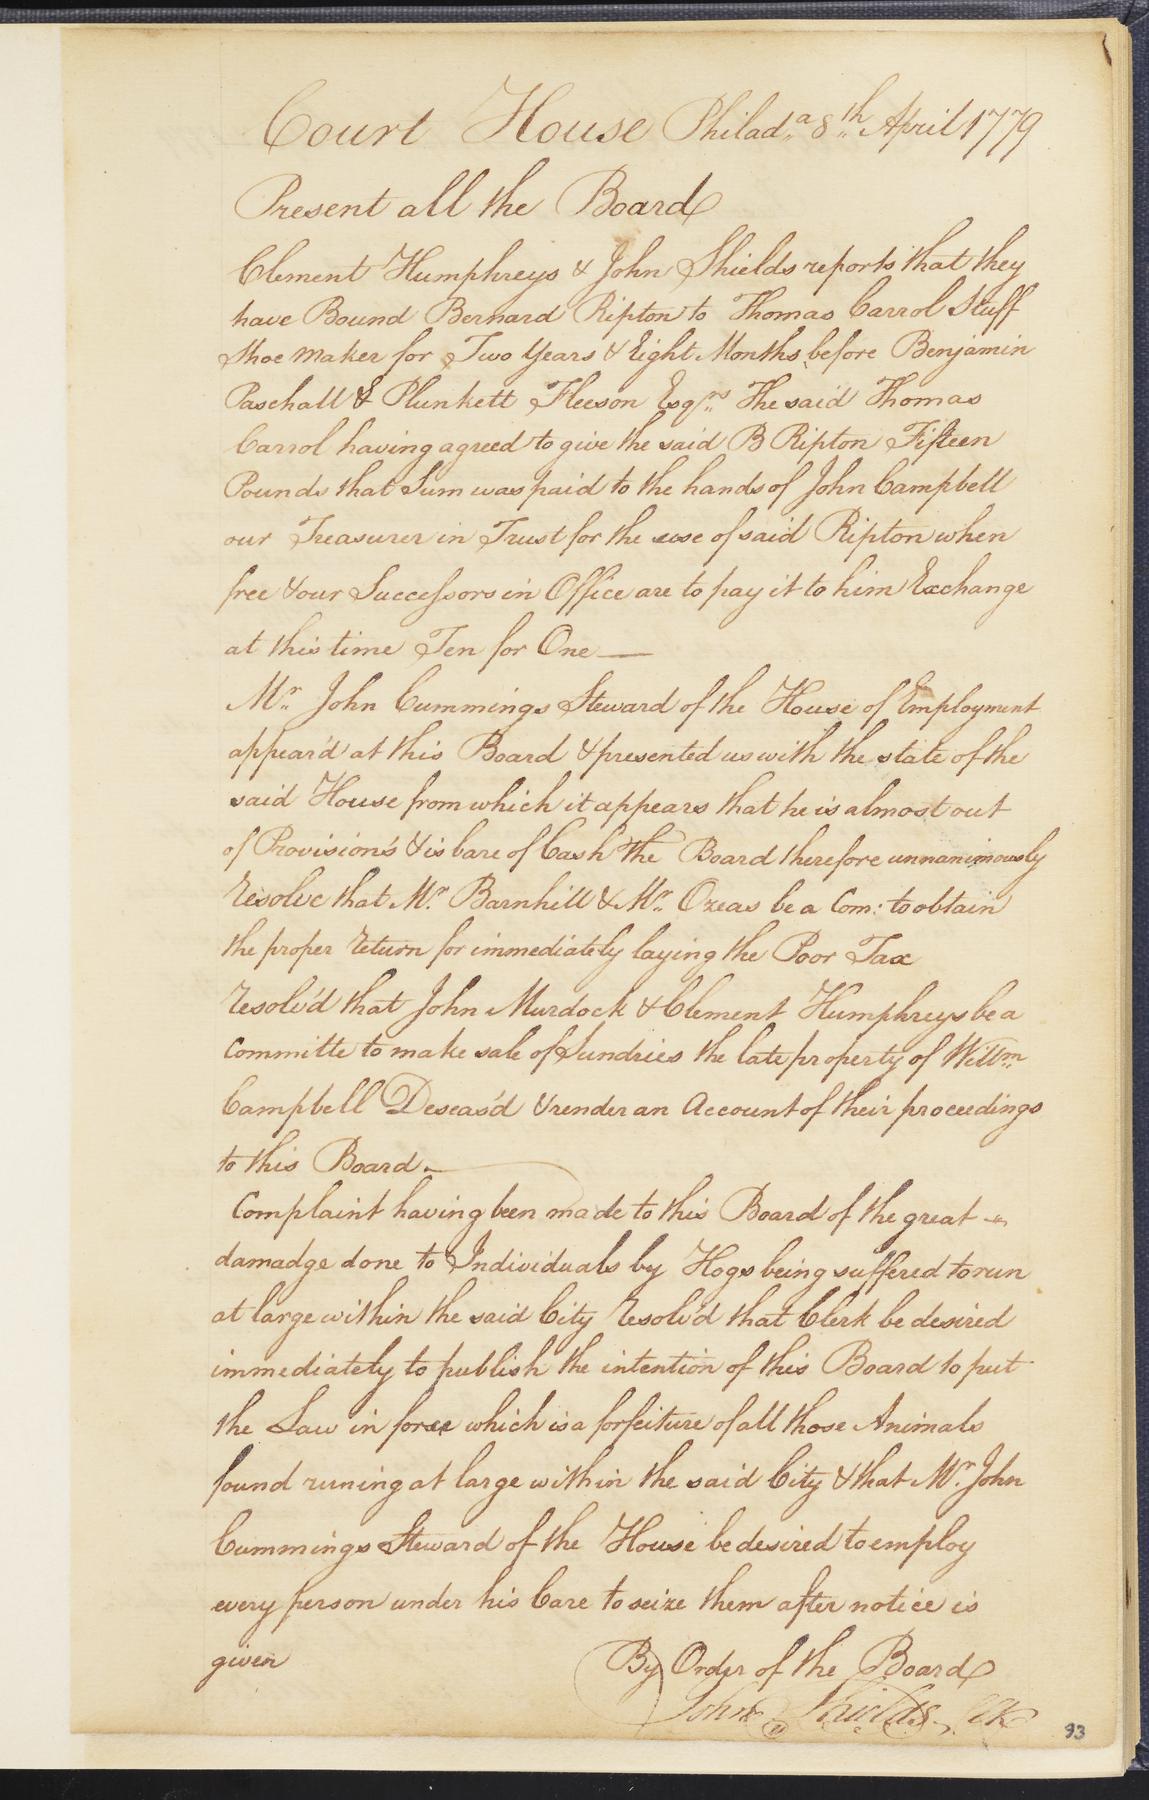 Court House Philad.a 8th April 1779
Present all the Board
Clement Humphreys & John Shields reports that they
have Bound Bernard Ripton to Thomas Carrol Stuff
Shoe maker for Two Years & Eight Months before Benjamin
Paschall & Plunkett Fleeson Esqrs The said Thomas
Carrol having agreed to give the said B Ripton Fifteen
Pounds that Sum was paid to the hands of John Campbell
our Treasurer in Trust for the use of said Ripton when
free & our Successors in Office are to pay it to him Exchange
at this time Ten for One —
Mr John Cummings Steward of the House of Employment
appear'd at this Board & presented us with the state of the
said House from which it appears that he is almost out
of Provisions & is bare of Cash The Board therefore unnanimously
resolve that Mr. Barnhill & Mr. Ozeas be a Com: to obtain
the proper return for immediately laying the Poor Tax
resolv'd that John Murdock & Clement Humphreys be a
Committe to make sale of Sundries the late property of Willm
Campbell Deseas'd & render an Account of their proceedings
to this Board. —
Complaint having been made to this Board of the great
damadge done to Individuals by Hogs being suffered to run
at large within the said City resolv'd that Clerk be desired
immediately to publish the intention of this Board to put
the Law in force which is a forfeiture of all those Animals
found runing at large within the said City & that Mr. John
Cummings Steward of the House be desired to employ
every person under his Care to seize them after notice is
given By Order of the Board
John Shields, Clk
93